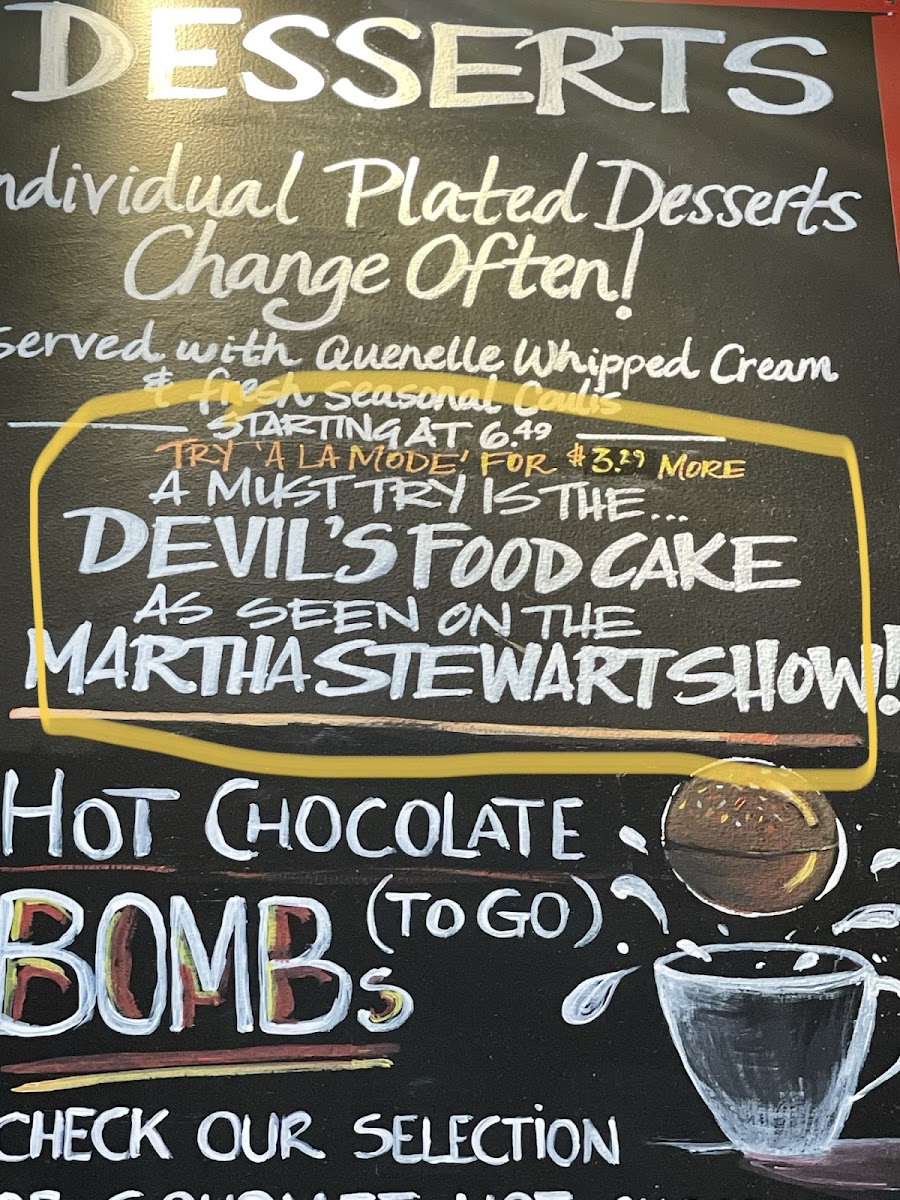 DESSERTS
ndividual Plated Desserts
Change Often!
Served with Quenelle Whipped Cream
& fresh seasonal Coulis
STARTING AT 6.49
TRY 'A LA MODE' FOR $3.29 MORE
A MUST TRY IS THE...
DEVIL'S FOOD CAKE
AS SEEN ON THE
MARTHA STEWART SHOW!
HOT CHOCOLATE
BOMBs (TO GO)
CHECK OUR SELECTION